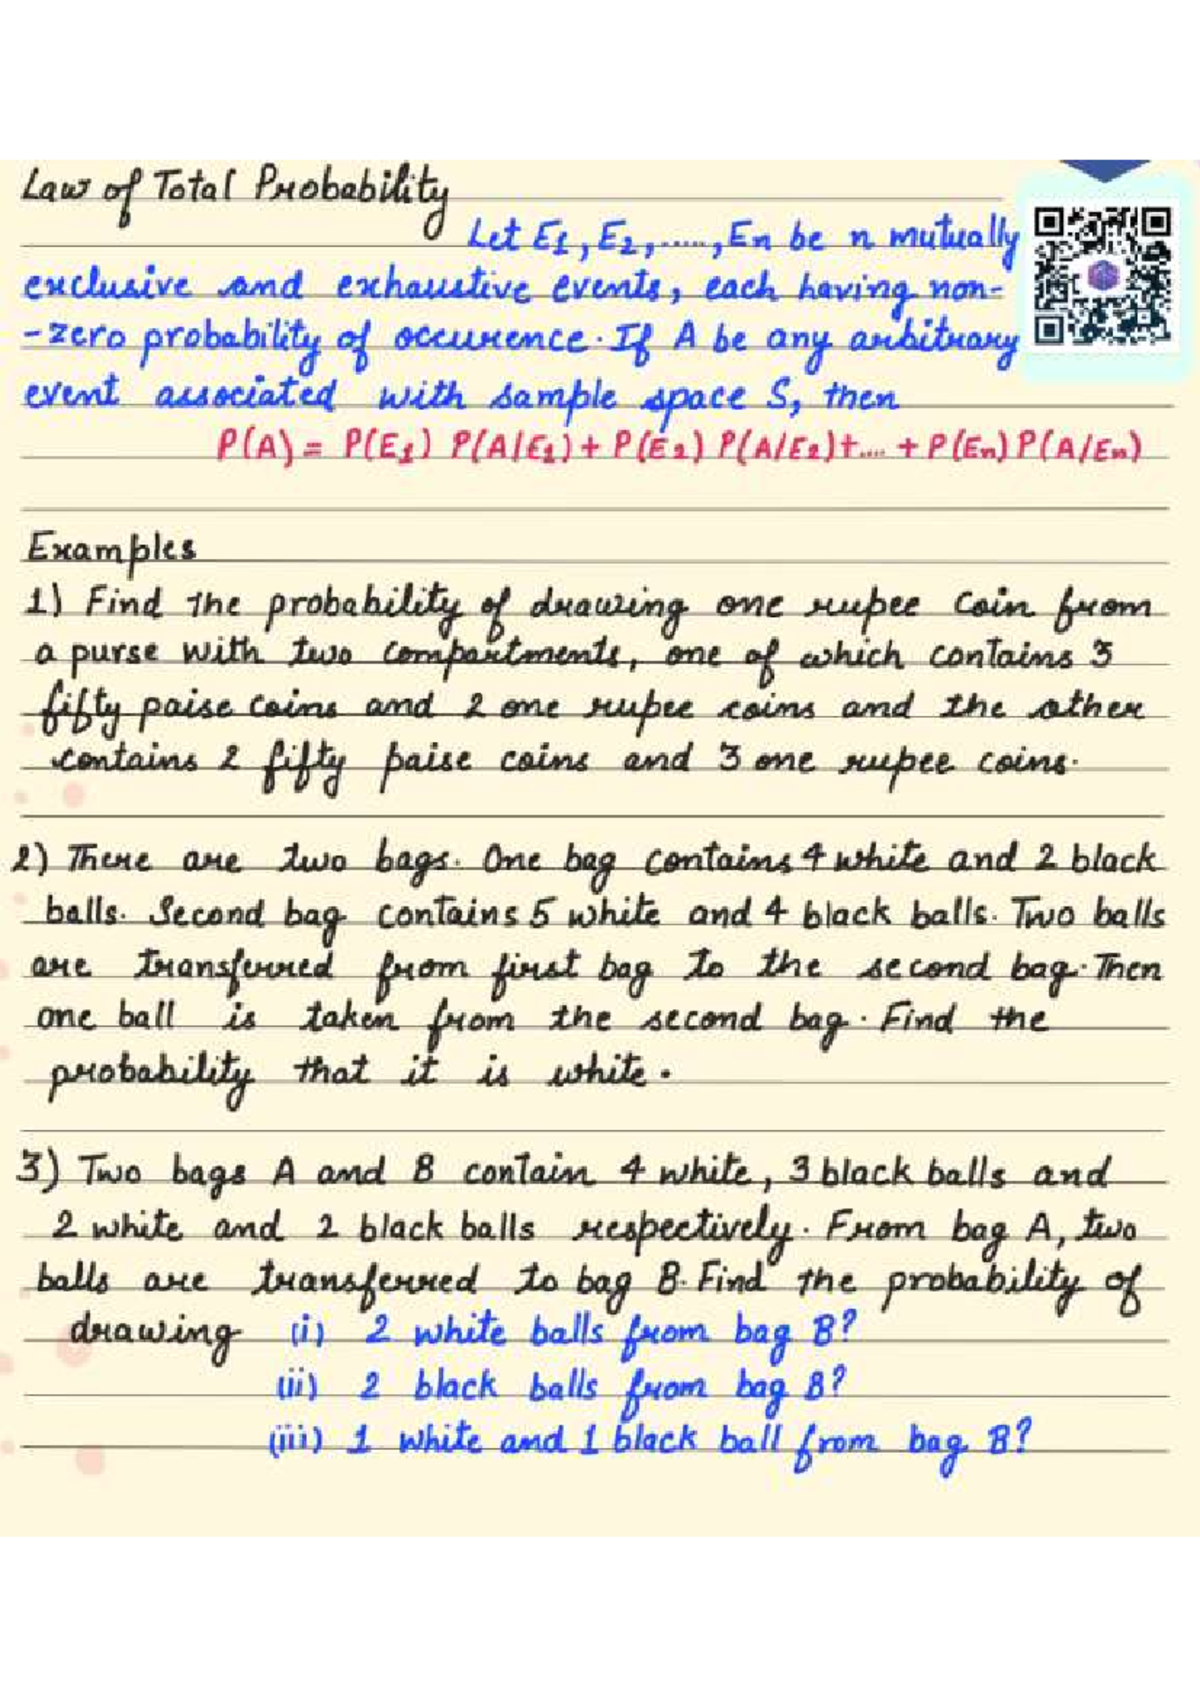 Law of Total Probability
Let E1, E2, ....., En be n mutually
exclusive and exhaustive events, each having non-
-zero probability of occurence. If A be any arbitrary
event associated with sample space S, then
P(A) = P(E1) P(A/E1) + P(E2) P(A/E2)+.... + P(En) P(A/En)
Examples
1) Find the probability of drawing one rupee coin from
a purse with two compartments, one of which contains 3
fifty paise coins and 2 one rupee coins and the other
contains 2 fifty paise coins and 3 one rupee coins.
2) There are two bags. One bag contains 4 white and 2 black
balls. Second bag contains 5 white and 4 black balls. Two balls
are transferred from first bag to the second bag. Then
one ball is taken from the second bag. Find the
probability that it is white.
3) Two bags A and B contain 4 white, 3 black balls and
2 white and 2 black balls respectively. From bag A, two
balls are transferred to bag B. Find the probability of
drawing (i) 2 white balls from bag B?
(ii) 2 black balls from bag B?
(iii) 1 white and 1 black ball from bag B?